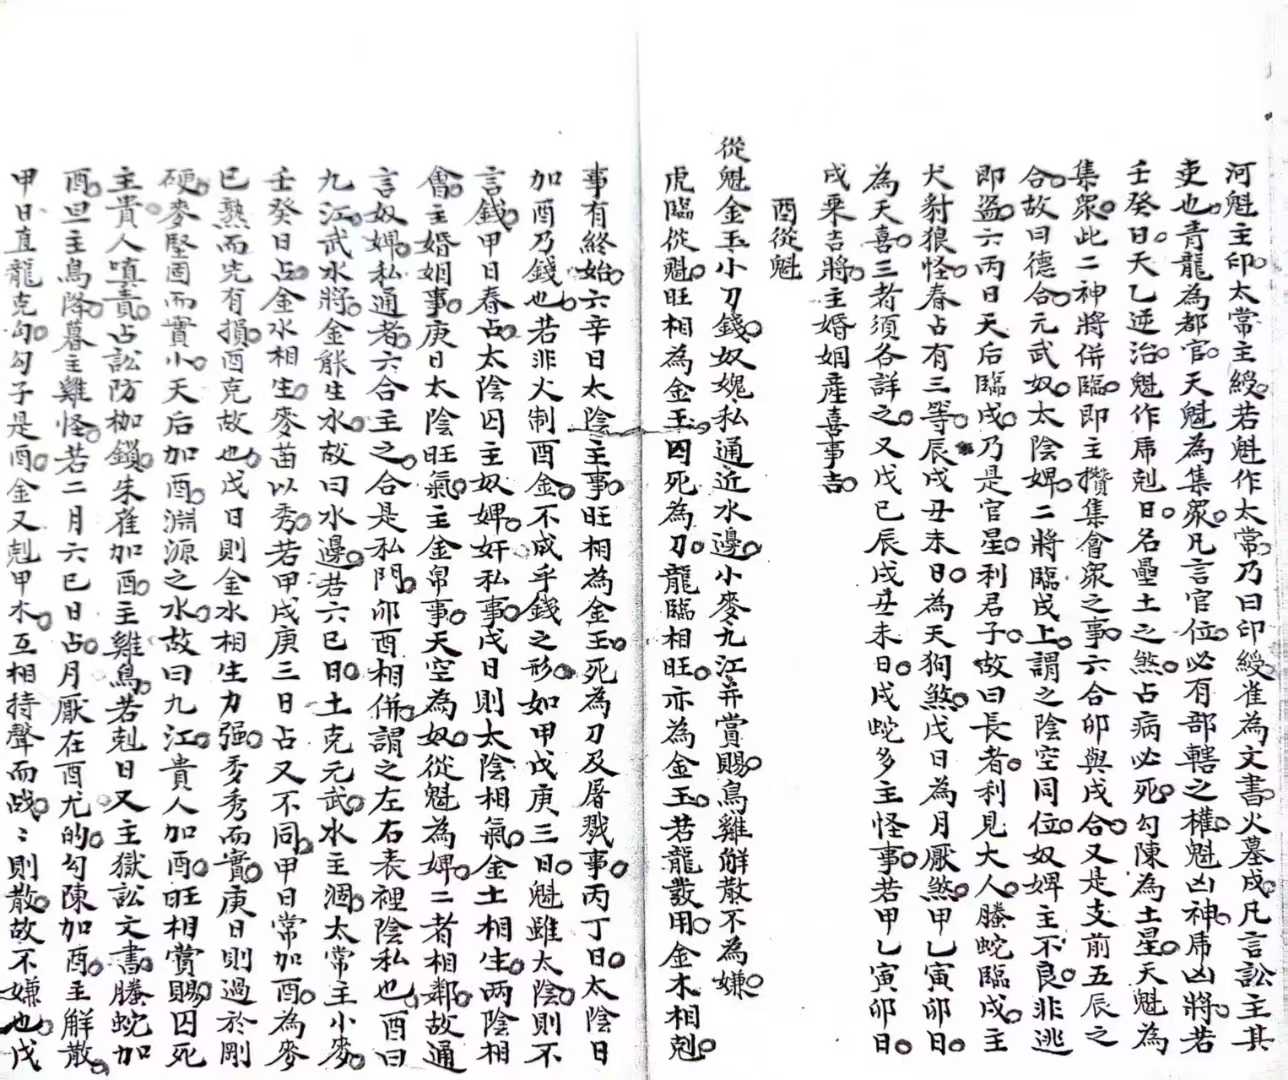 河魁主印太常主綬若魁作太常乃曰印綬雀為文書火墓戌凡言訟主其
吏也青龍為都官天魁為集衆凡言官位必有部轄之權魁凶神虎凶將若
壬癸日天乙逆治魁作虎剋日名壘土之煞占病必死勾陳為土星天魁為
集衆此二神將併臨即主攢集會衆之事六合卯與戌合又是支前五辰之
合故曰德合元武奴太陰婢二將臨戌上謂之陰空同位奴婢主不良非逃
即盜六丙日天后臨戌乃是官星利君子故曰長者利見大人螣蛇臨戌主
犬豺狼怪春占有三等辰戌丑未日為天狗煞戊日為月厭煞甲乙寅卯日
為天喜三者須各詳之又戊己辰戌丑未日戌蛇多主怪事若甲乙寅卯日
戌乘吉將主婚姻產喜事吉
酉從魁
從魁金玉小刀錢奴媿私通近水邊小麥九江并賞賜鳥雞觧散不為嫌
虎臨從魁旺相為金玉囚死為刀龍臨相旺亦為金玉若龍發用金木相剋
事有終始六辛日太陰主事旺相為金玉死為刀及屠戮事丙丁日太陰日
加酉乃錢也若非火制酉金不成乎錢之形如甲戊庚三日魁雖太陰則不
言錢甲日春占太陰囚主奴婢奸私事戊日則太陰相氣金土相生兩陰相
會主婚姻事庚日太陰旺氣主金帛事天空為奴從魁為婢二者相鄰故通
言奴婢私通者六合主之合是私門卯酉相併謂之左右表裡陰私也酉曰
九江武水將金能生水故曰水邊若六巳日土克元武水主涸太常主小麥
壬癸日占金水相生麥苗以秀若甲戊庚三日占又不同甲日常加酉為麥
已熟而先有損酉克故也戊日則金水相生力强麥秀而實庚日則過於剛
硬麥堅固而實小天后加酉淵源之水故曰九江貴人加酉旺相賞賜囚死
主貴人嗔責占訟防枷鎖朱雀加酉主雞鳥若剋日又主獄訟文書螣蛇加
酉旦主鳥降暮主雞怪若二月六巳日占月厭在酉尤的勾陳加酉主解散
甲日直龍克勾勾子是酉金又剋甲木互相持聲而战〻則散故不嫌也戊